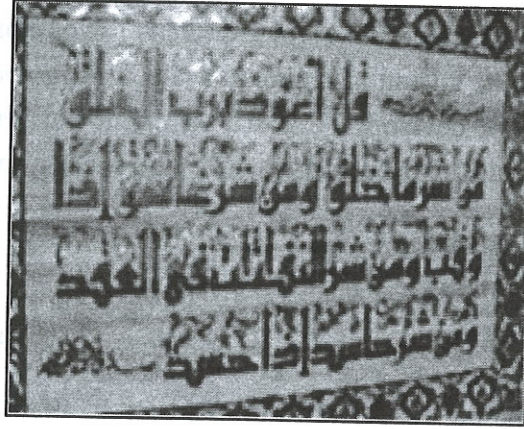 قل اعوذ برب الفلق
من شر ما خلق ومن شر غاسق إذا
وقب ومن شر النفثت في العقد
ومن شر حاسد إذا حسد